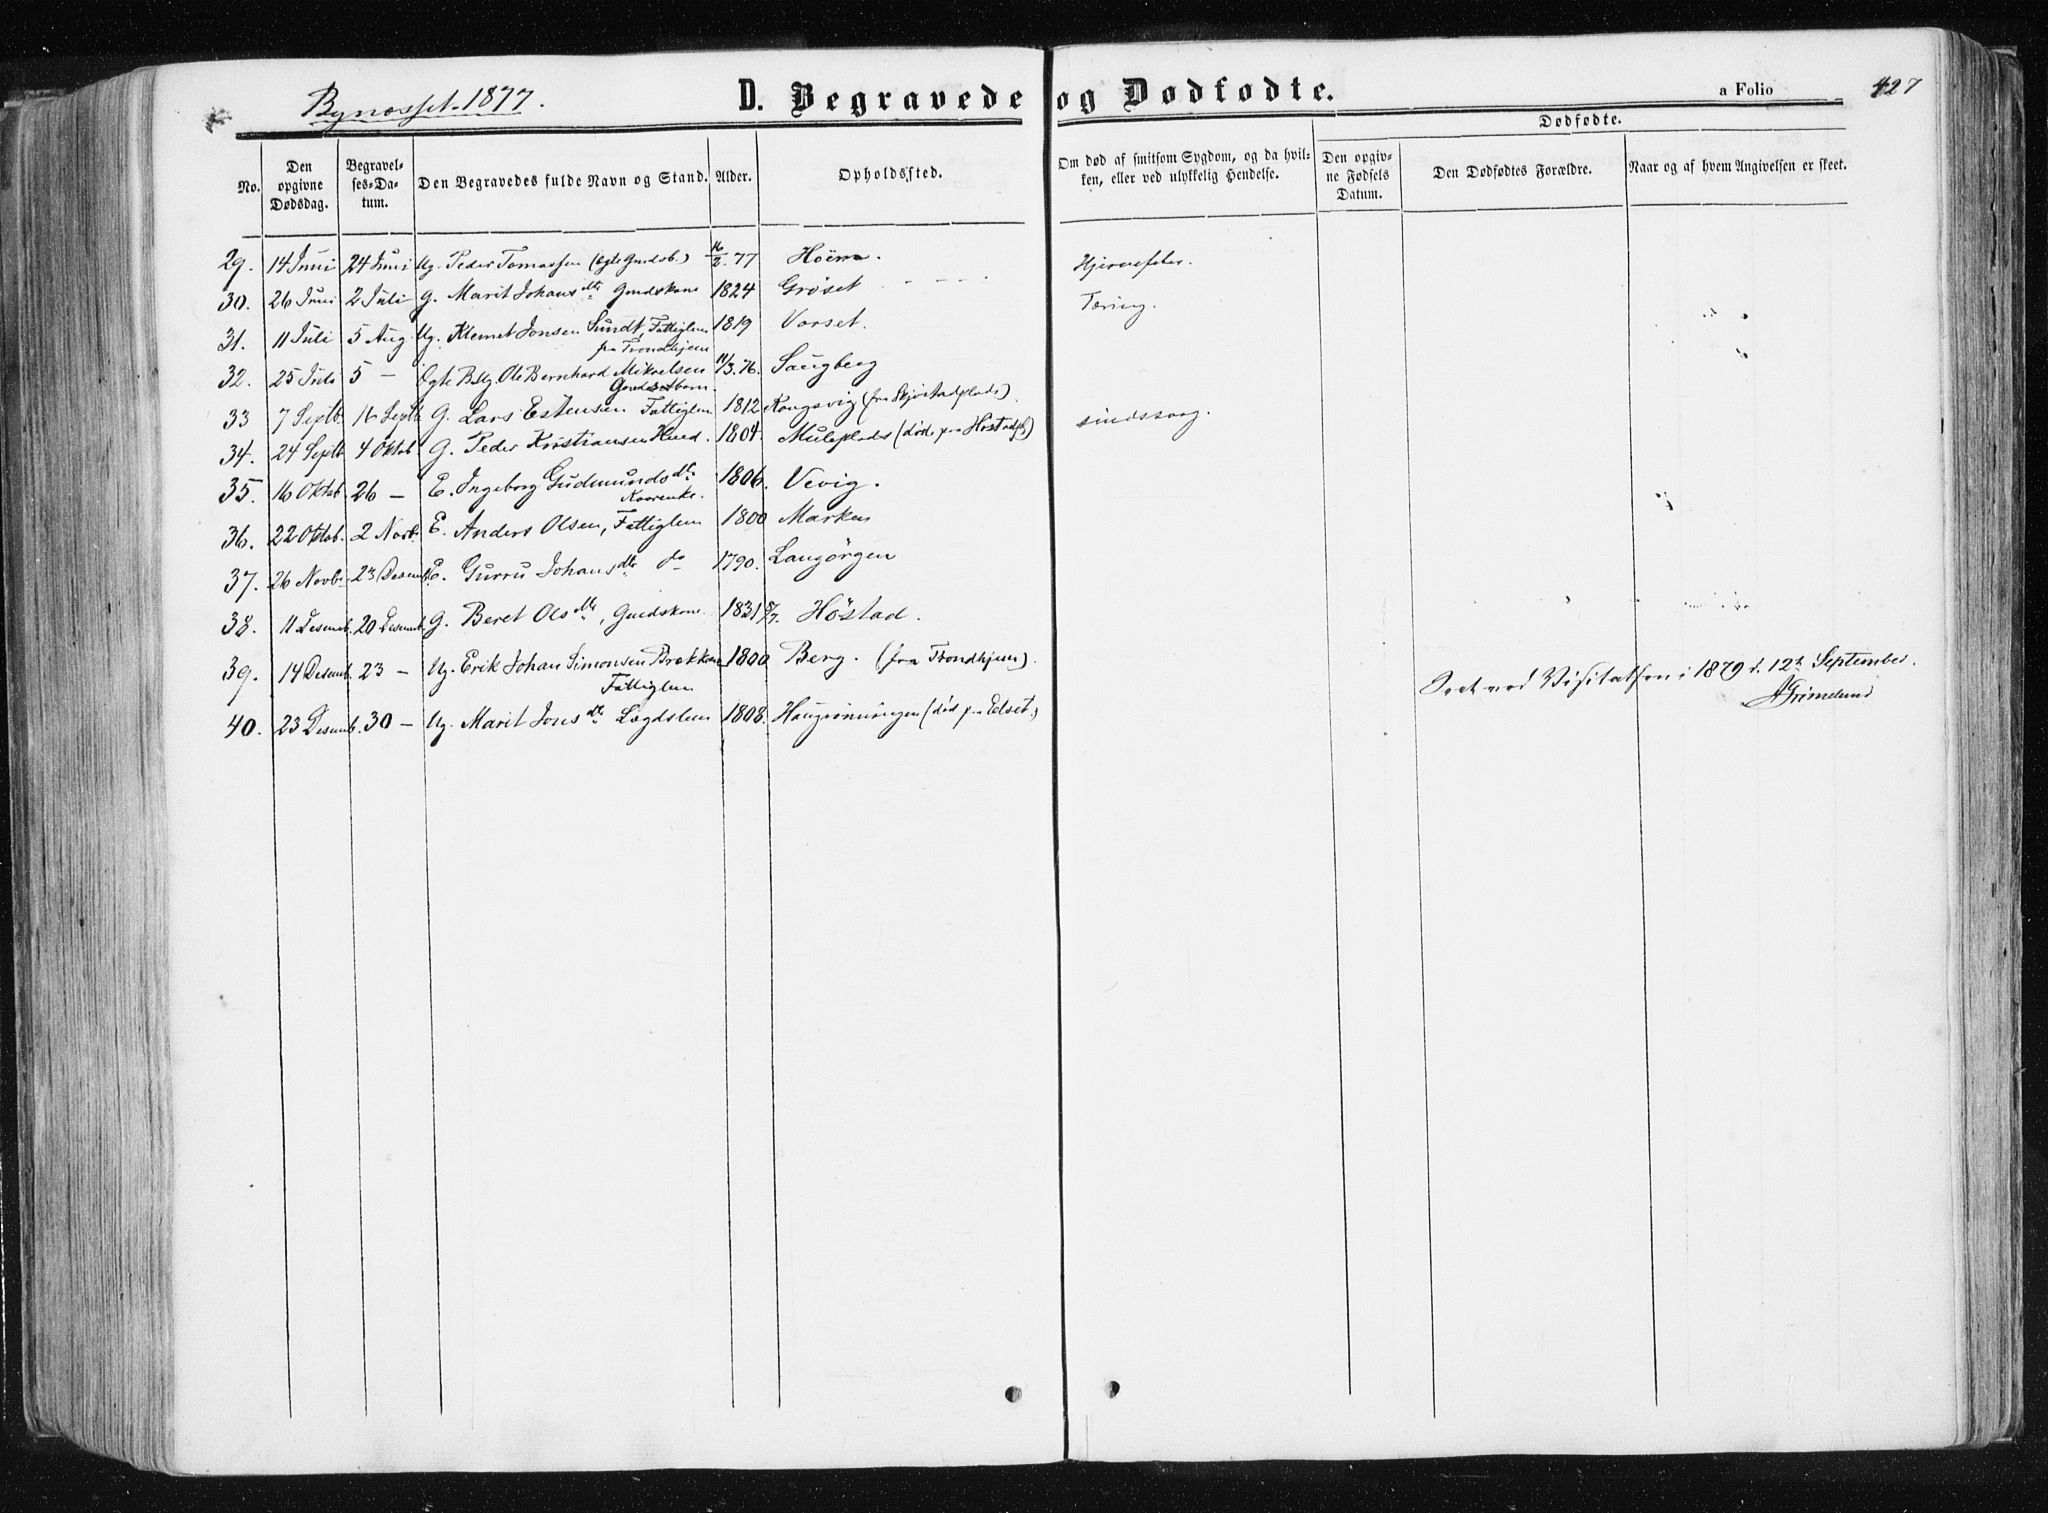 Bynæsset 1877.
D. Begravede og Dødfødte.
a Folio 427
No.
Den opgivne Dødsdag.
Begravelses-Datum.
Den Begravedes fulde Navn og Stand.
Alder.
Opholdssted.
Om død af smitsom Sygdom, og da hvilken, eller ved ulykkelig Hendelse.
Dødfødte.
Den opgivne Fødsels Datum.
Den Dødfødtes Forældre.
Naar og af hvem Angivelsen er skeet.
29. 14 Juni 24 Juni Ug. Peder Tomassen (ægte Grdsb.) 16/2. 77 Höiem. Hjernefeber.
30. 26 Juni 2 Juli G. Marit Johans dtr Grdskone 1824 Gröset Tæring.
31. 11 Juli 5 Aug. Ug. Klemet Jonsen Sundt, Fattiglem 1819 Vorset.
fra Trondhjem
32. 25 Juli 5 — Ægte B. Ug. Ole Bernhard Mikaelsen 11/3. 76. Saugberg
33 7 Septb. 16 Septb G. Lars Estensen Fattiglem 1812 Kongsvig (fra Skjöstadplads) sindssvag.
34. 24 Septb 4 Oktob. G. Peder Kristiansen Husmd. 1804. Muleplads (död paa Höstadpl)
35. 16 Oktob 26 — E. Ingeborg Gudmunds dtr 1806. Vevig.
Kaarenke.
36. 22 Oktob. 2 Novb. E. Anders Olsen, Fattiglem 1800 Marken
37. 26 Novb. 23 Desemb. E. Gurru Johans dtr do 1790. Langörgen
38. 11 Desemb. 20 Desemb. G. Beret Ols dtr, Grdskone. 1831 8/7. Höstad.
39. 14 Desemb. 23 — Ug. Erik Johan Simonsen Brækkan 1800 Berg. (fra Trondhjem).
Fattiglem
40. 23 Desemb. 30 — Ug. Marit Jons dtr Lægdslem 1808. (död paa Elset.)
Seet ved Visitatsen i 1879 d. 12te September.
AGrimelund